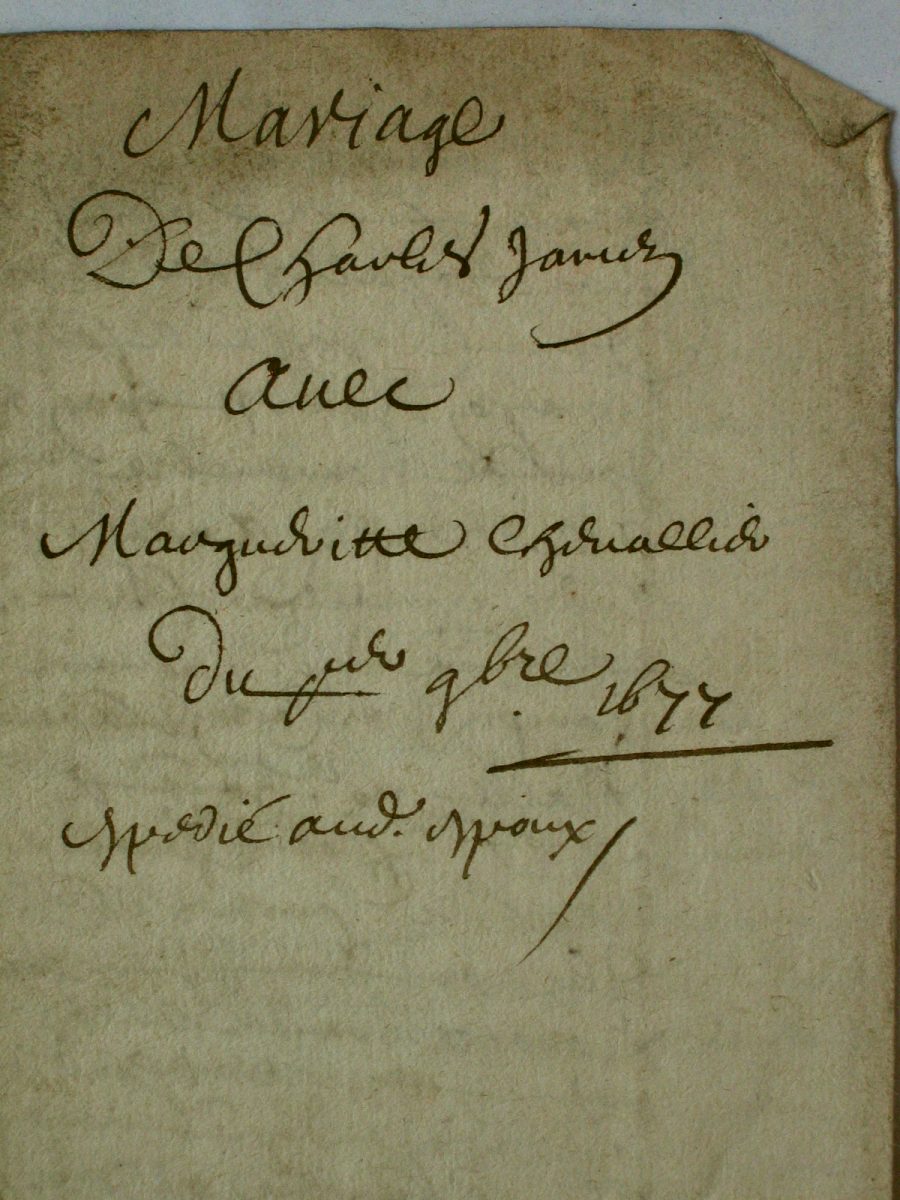 Mariage
De Charles Jamez
auec
Margueritte Cheuallier
Du pier 9bre 1677
Expedié aud. Espoux